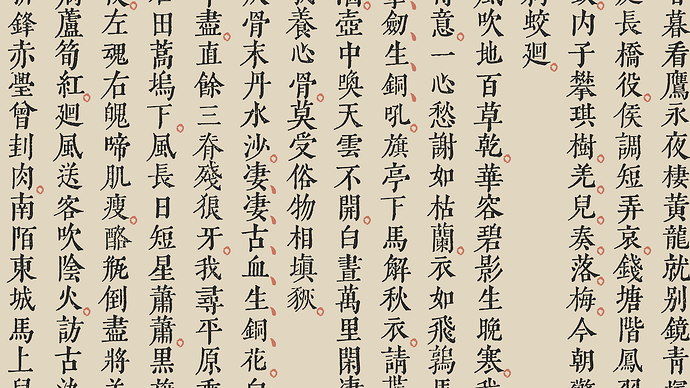 暮看鷹永夜棲黃龍就別鏡青
長橋役侯調短弄哀錢塘階鳳
内子攀琪樹羌兒奏落梅今朝
蛟迴
風吹地百草乾華容碧影生晚寒我
意一心愁謝如枯蘭衣如飛鶉馬
劒生銅吼旗亭下馬解秋衣請
壺中喚天雲不開白晝萬里閑淒
養心骨莫受俗物相塡豗
骨末丹水沙淒淒古血生銅花白
盡直餘三脊殘狼牙我尋平原
田蒿塢下風長日短星蕭蕭黑旗
左魂右魄啼肌瘦酪瓶倒盡將羊
蘆筍紅迴風送客吹陰火訪古
鋒赤璺曾刲肉南陌東城馬上兒